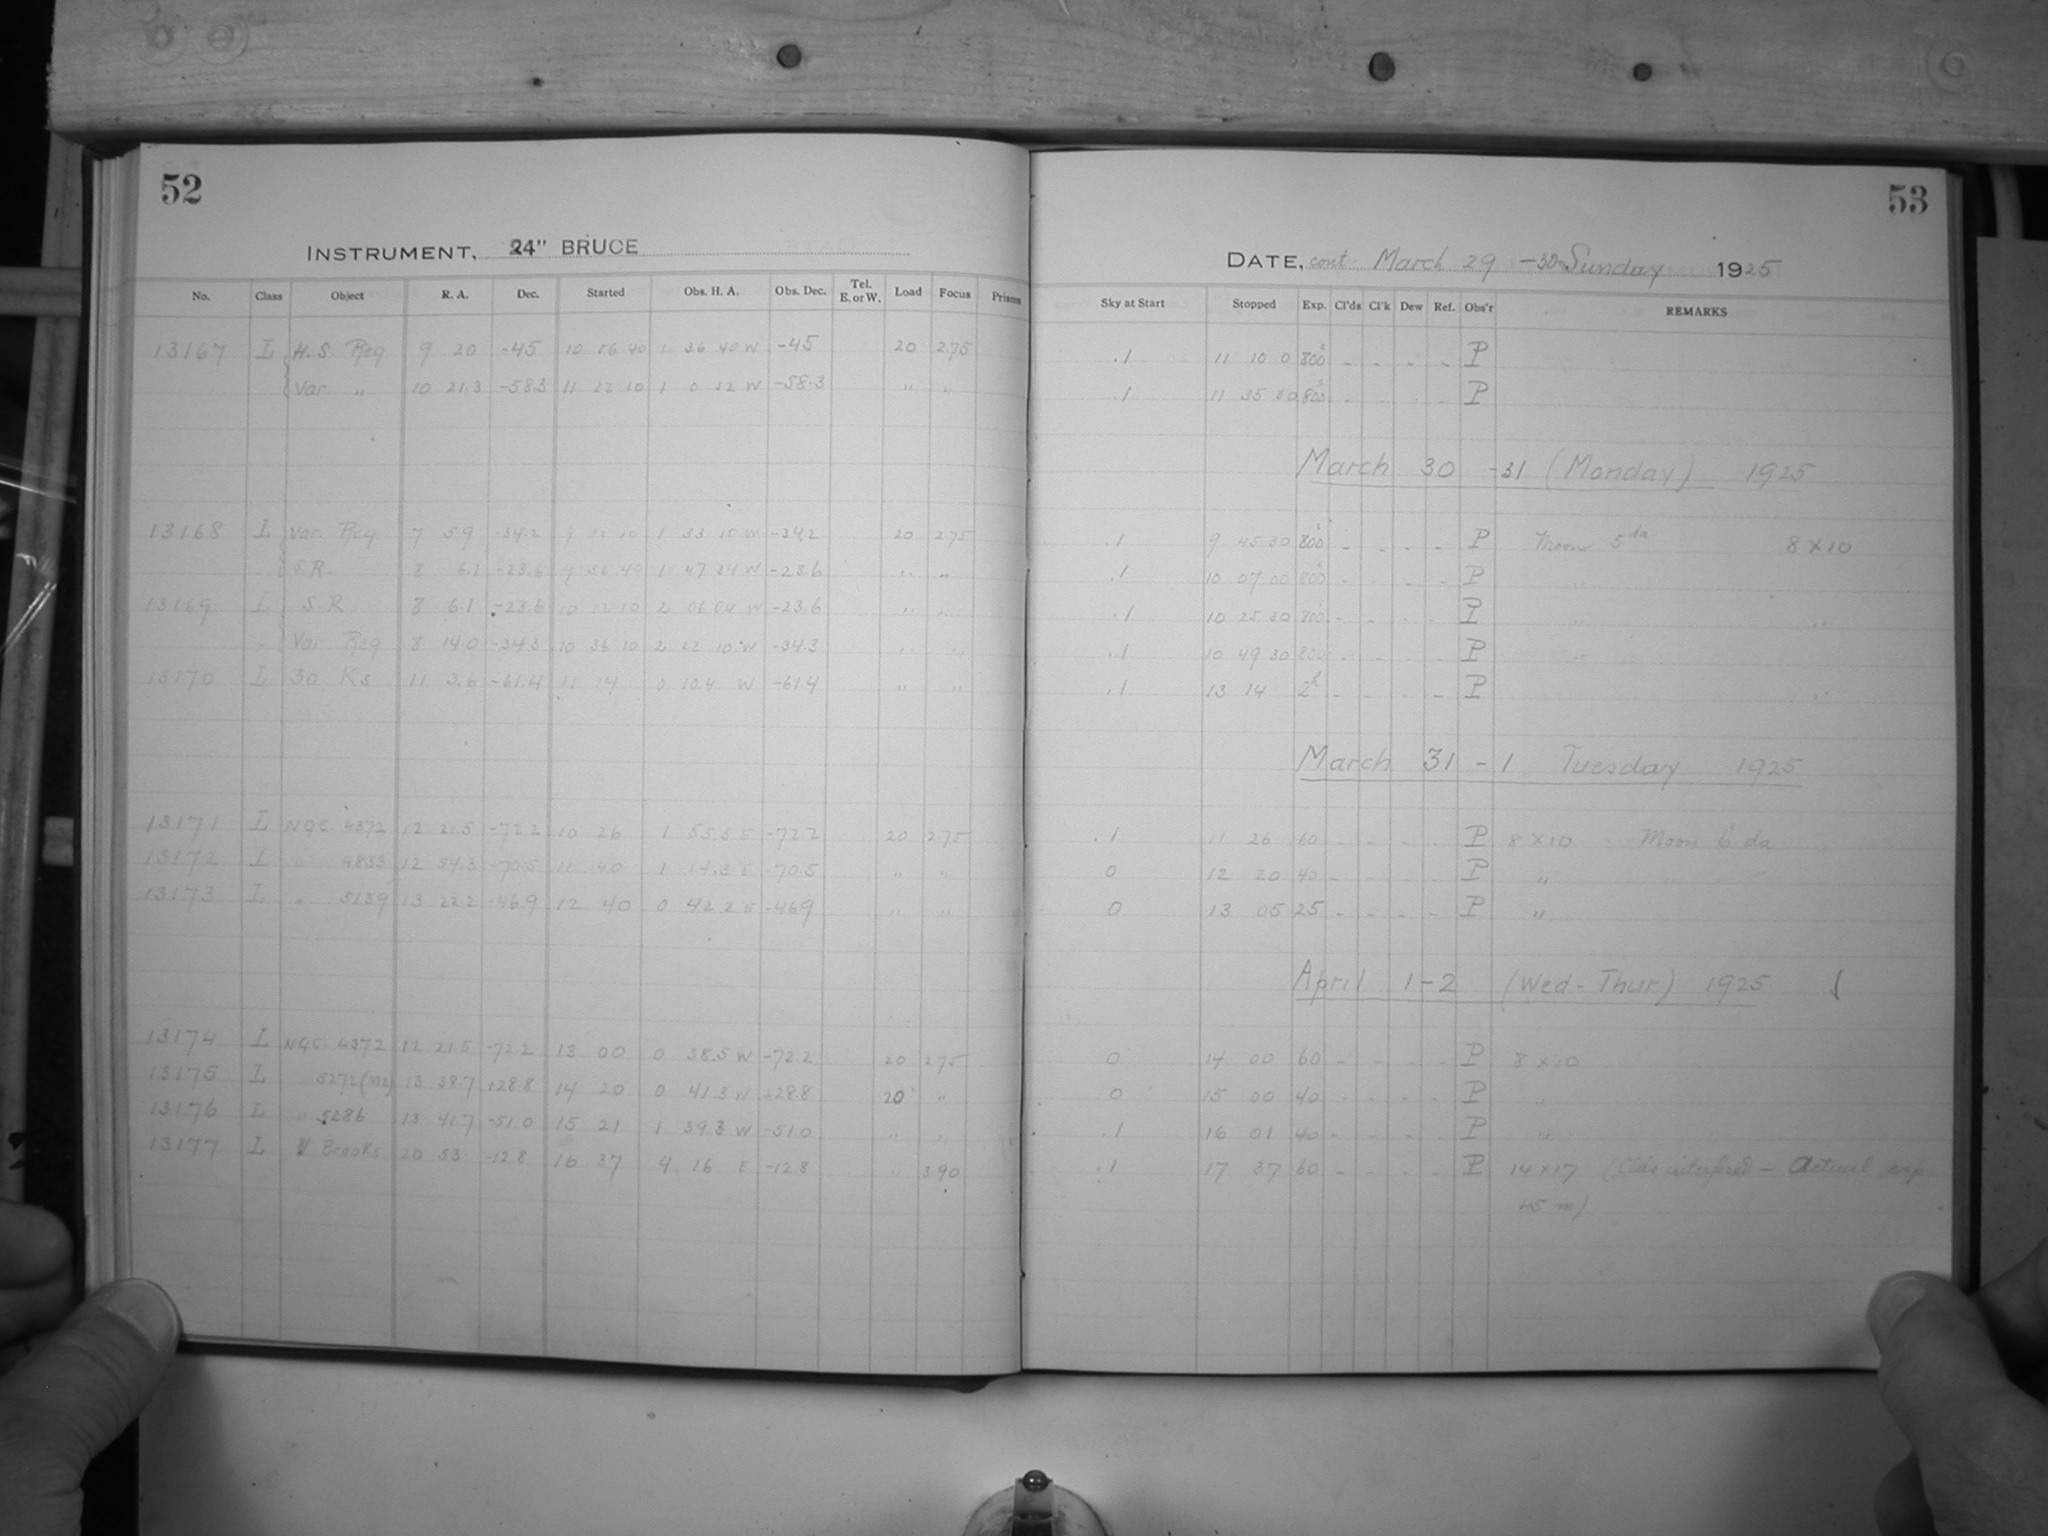 52
INSTRUMENT, 24" BRUCE
No. Class Object R. A. Dec. Started Obs. H. A. Obs. Dec. Tel. E. or W. Load Focus Prisms
13167 I H.S Reg 9 20 -45 10 56 40 1 36 40 W -45 20 2.75
Var " 10 21.3 -58.3 11 22 10 1 0 52 W -58.3 " "
13168 L Var Reg 7 59 -34.2 9 32 10 1 33 10 W -34.2 20 2.75
S.R. 8 6.1 -23.6 9 1 47 34 W -23.6 " "
13169 L S R 8 6.1 -23.6 10 12 10 2 06 04 W -23.6 " "
Var Reg 8 14.0 -34.3 10 36 10 2 22 10 W -34.3 " "
13170 L 30 Ks 11 3.6 -61.4 11 14 0 10.4 W -61.4 " "
13171 L NGC 4372 12 21.5 -72.2 10 26 1 55.5 E -72.2 20 2.75
13172 L " 4833 12 54.3 -70.5 11 40 1 14.3 E -70.5 " "
13173 L " 5139 13 22.2 -46.9 12 40 0 42.2 E -46.9 " "
13174 L NGC 4372 12 21.5 -72.2 13 00 0 38.5 W -72.2 20 2.75
13175 L 5272 13 38.7 +28.8 14 20 0 41.3 W +28.8 20 "
13176 L " 5286 13 41.7 -51.0 15 21 1 39.3 W -51.0 " "
13177 L Brooks 20 53 -12.8 16 37 4 16 E -12.8 " 3.90
53
DATE, cont. March 29 -30 Sunday 1925
Sky at Start Stopped Exp. Cl'ds Cl'k Dew Ref. Obs'r REMARKS
.1 11 10 0 800s - - - - P
.1 11 35 30 800s - - - - P
March 30 -31 (Monday) 1925
.1 9 45 30 800s - - - - P Moon 5 da 8 x 10
.1 10 07 00 800s - - - - P "
.1 10 25 30 800s - - - - P " "
.1 10 49 30 800 - - - - P "
.1 13 14 2h - - - - P "
March 31 - 1 Tuesday 1925
.1 11 26 60 - - - - P 8 x 10 Moon 6 da
0 12 20 40 - - - - P " " " "
0 13 05 25 - - - - P "
April 1-2 (Wed - Thur) 1925
0 14 00 60 - - - - P 8 x 10
0 15 00 40 - - - - P "
.1 16 01 40 - - - - P "
.1 17 37 60 - - - - P 14 x 17 (Clds interfered - Actual exp
45 m)